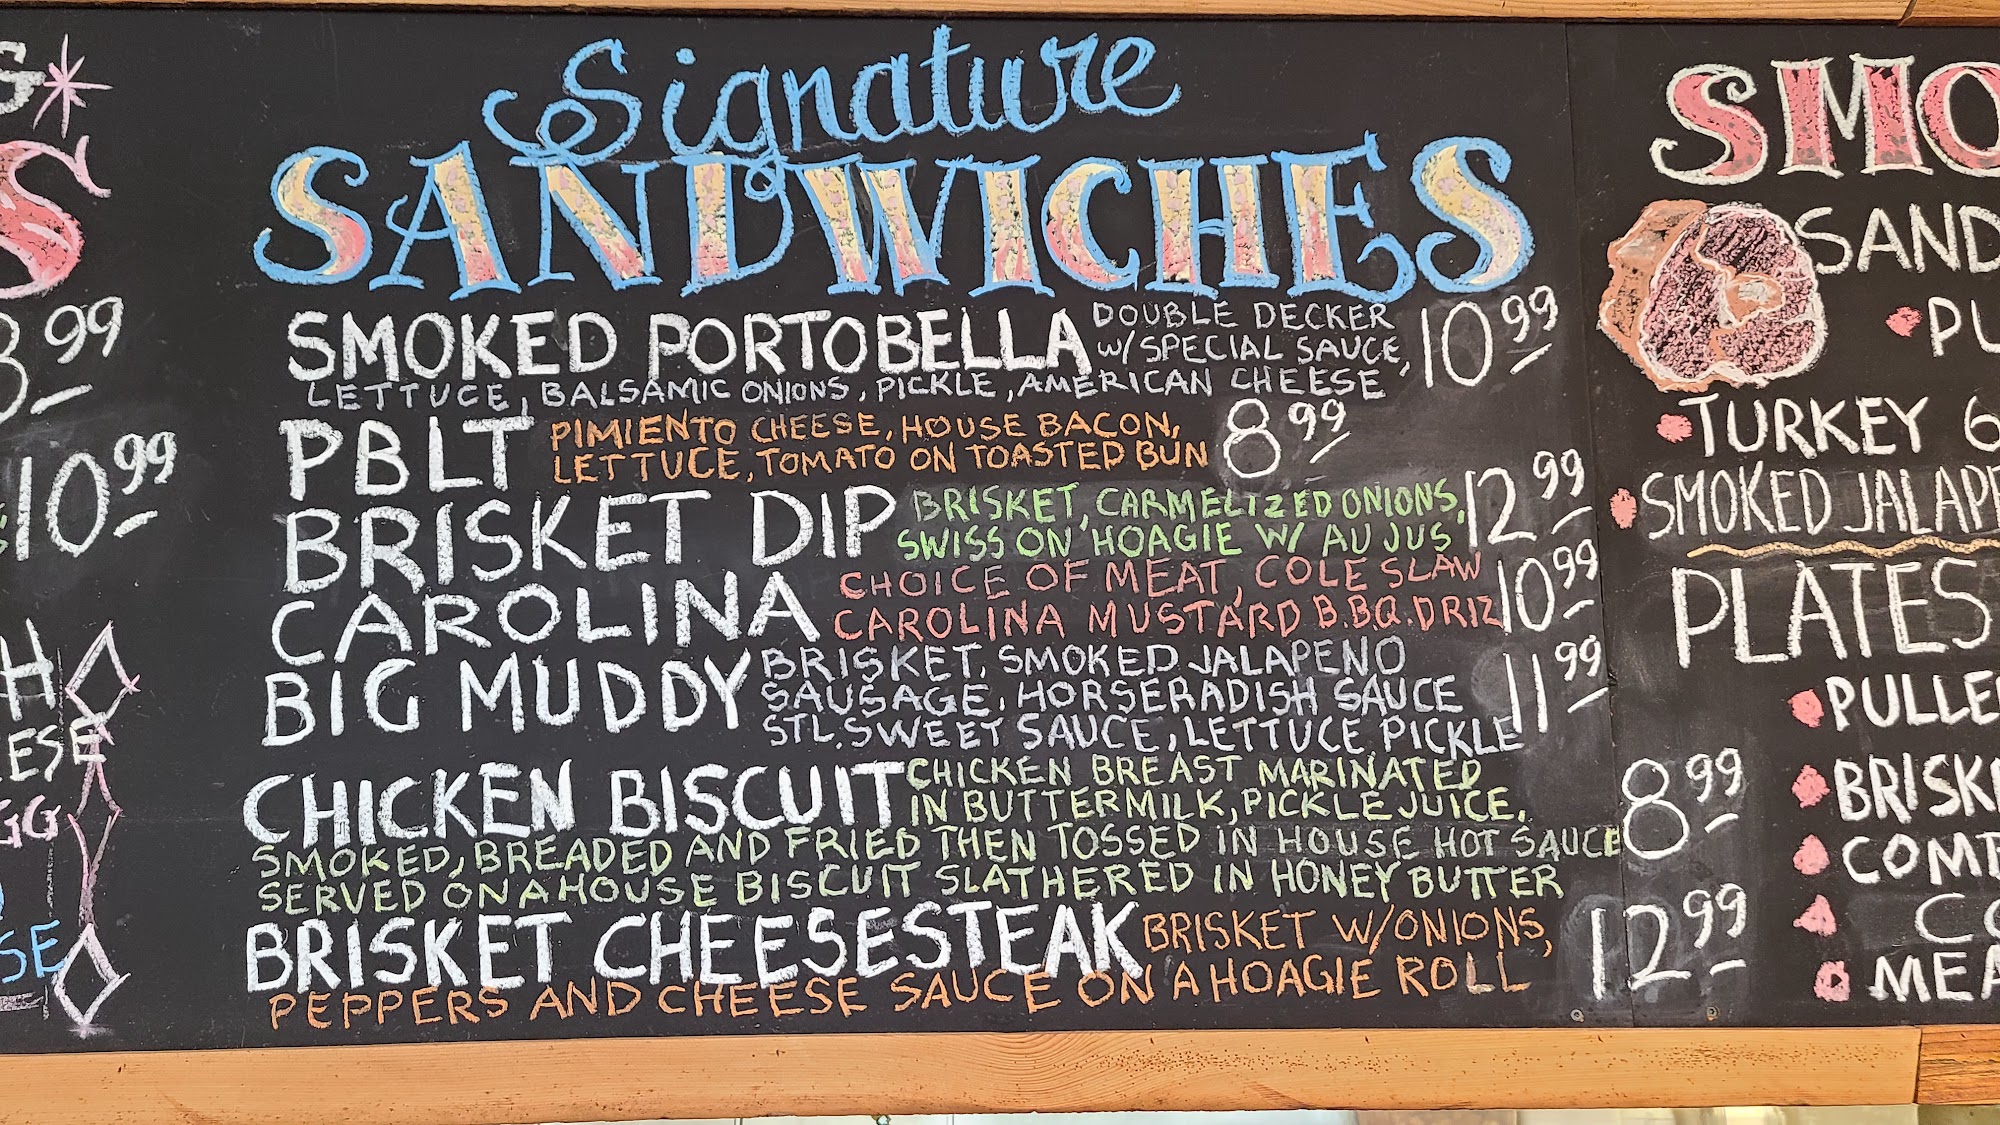 Signature
SANDWICHES
SMOKED PORTOBELLA DOUBLE DECKER
W/ SPECIAL SAUCE, 10.99
LETTUCE, BALSAMIC ONIONS, PICKLE, AMERICAN CHEESE
PBLT PIMIENTO CHEESE, HOUSE BACON, 8.99
LETTUCE, TOMATO ON TOASTED BUN
BRISKET DIP BRISKET, CARMELIZED ONIONS, 12.99
SWISS ON HOAGIE W/ AU JUS
CAROLINA CHOICE OF MEAT, COLE SLAW 10.99
CAROLINA MUSTARD B.B.Q. DRIZ
BIG MUDDY BRISKET, SMOKED JALAPENO 11.99
SAUSAGE, HORSERADISH SAUCE
STL. SWEET SAUCE, LETTUCE PICKLE
CHICKEN BISCUIT CHICKEN BREAST MARINATED
IN BUTTERMILK, PICKLE JUICE, 8.99
SMOKED, BREADED AND FRIED THEN TOSSED IN HOUSE HOT SAUCE
SERVED ON A HOUSE BISCUIT SLATHERED IN HONEY BUTTER
BRISKET CHEESESTEAK BRISKET W/ ONIONS, 12.99
PEPPERS AND CHEESE SAUCE ON A HOAGIE ROLL
SMO
SAND
PU
TURKEY 6
SMOKED JALAP
PLATES
PULLE
BRISK
COM
CO
MEA
S
8.99
10.99
H
EESE
GG
SE